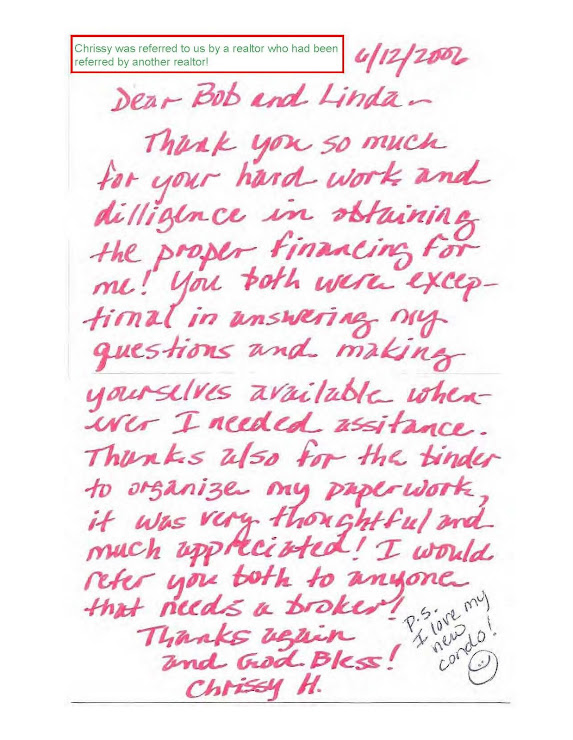 Chrissy was referred to us by a realtor who had been
referred by another realtor!
6/12/2002
Dear Bob and Linda -
Thank you so much
for your hard work and
dilligence in obtaining
the proper financing for
me! You both were excep-
tional in answering my
questions and making
yourselves available when-
ever I needed assitance.
Thanks also for the binder
to organize my paperwork,
it was very thoughtful and
much appreciated! I would
refer you both to anyone
that needs a broker!
Thanks again
and God Bless!
Chrissy H.
P.S.
I love my
new
condo!